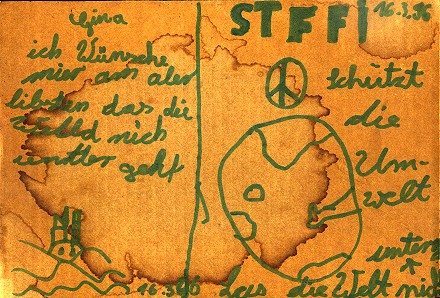 Gina
ich Wünsche
mier am aler
libsten das die
Welld nich
untter geht
16.3.96
STEFFI 16.3.96
Schützt
die
Um-
welt
das die Welt nich
unter